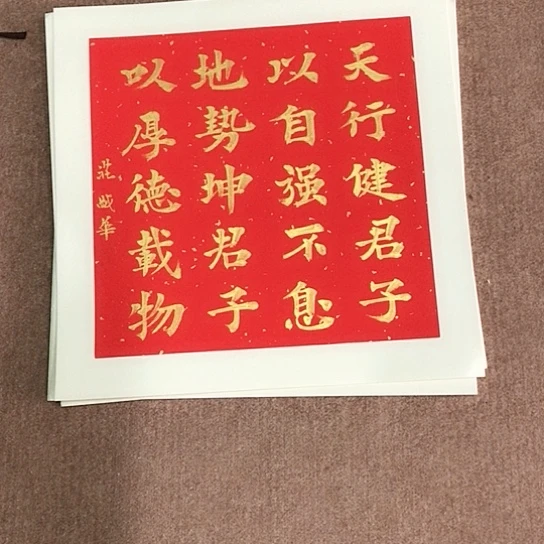 天行健君子
以自强不息
地勢坤君子
以厚德載物